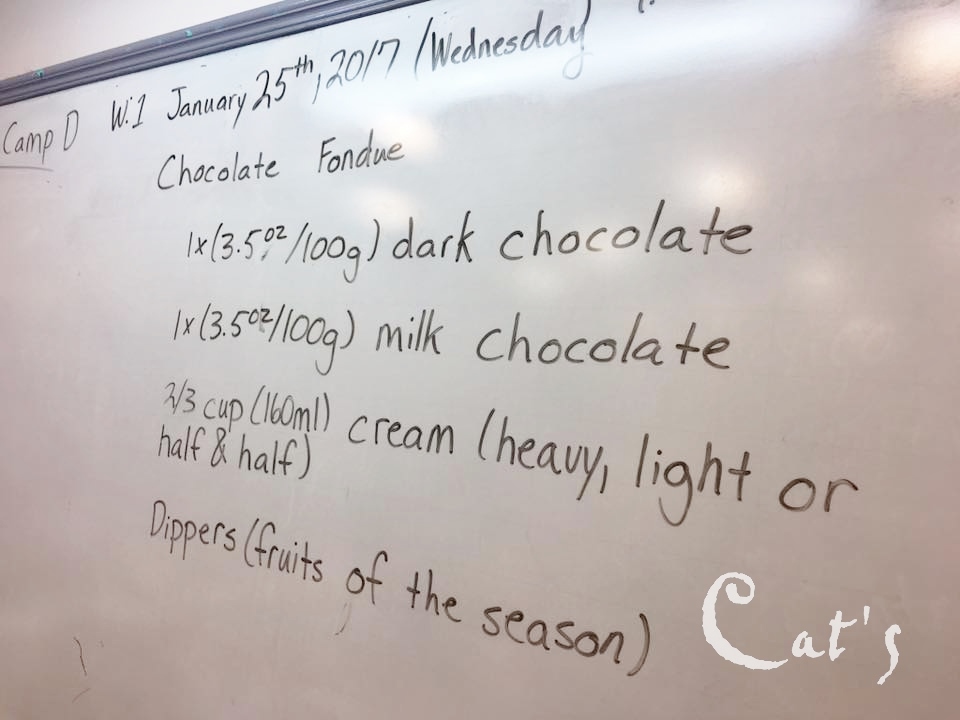 Camp D W.1 January 25th, 2017 / Wednesday
Chocolate Fondue
1x (3.5oz/100g) dark chocolate
1x (3.5oz/100g) milk chocolate
2/3 cup (160ml) cream (heavy, light or
half & half)
Dippers (fruits of the season)
Cat's